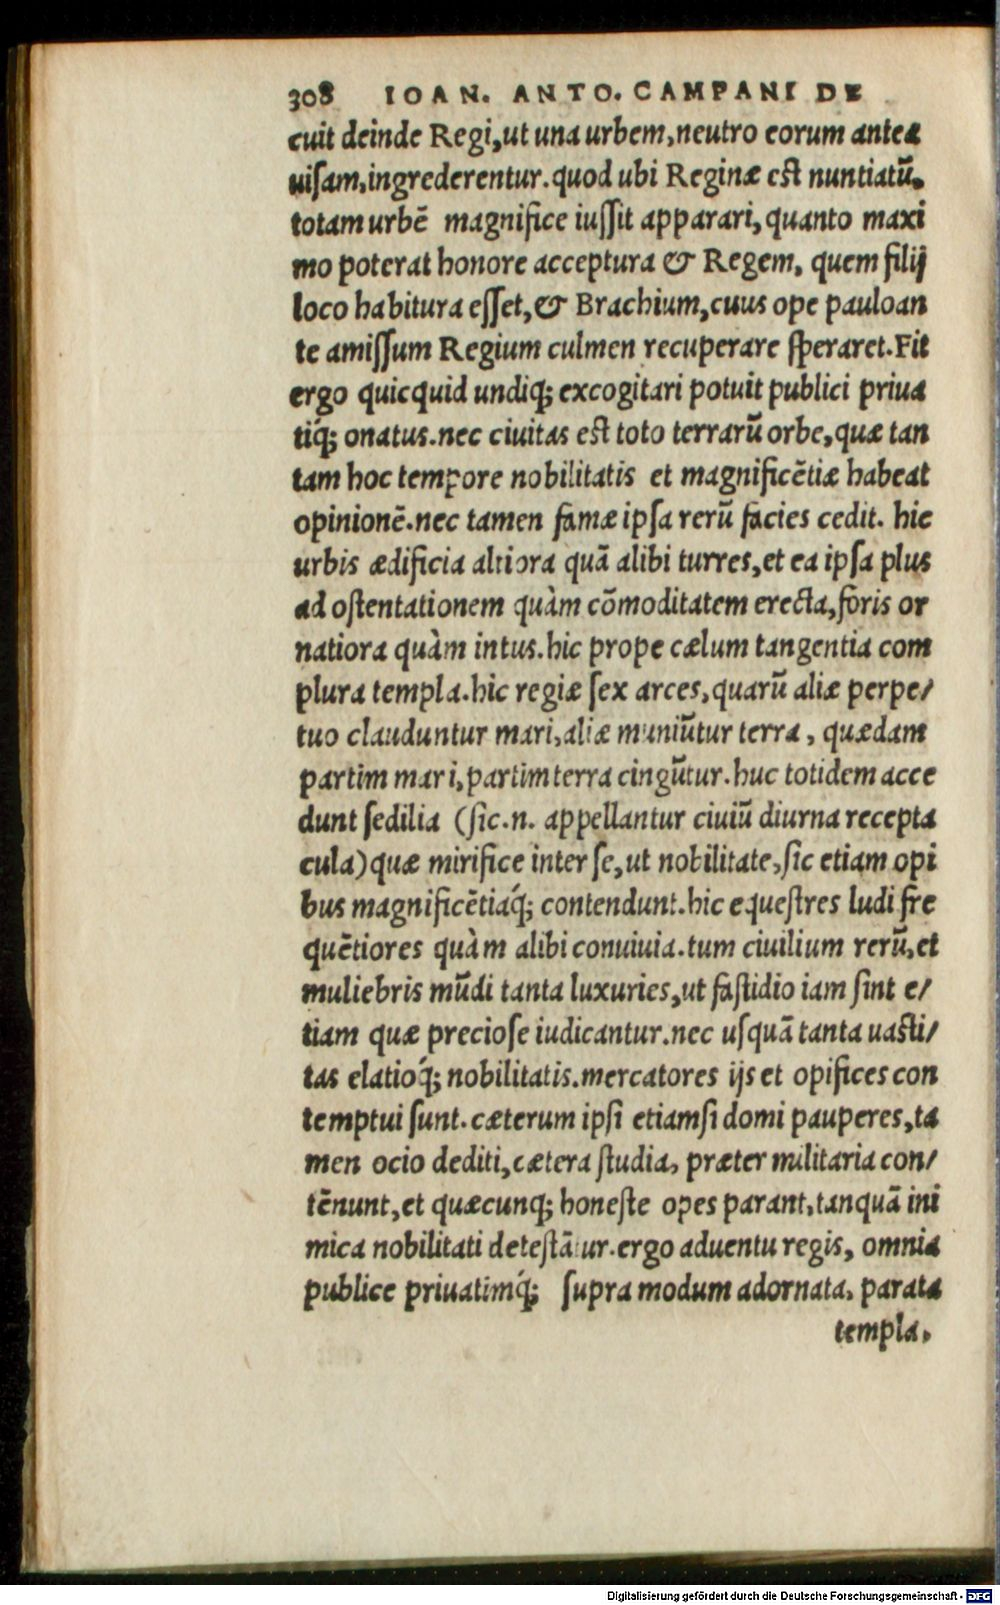 308 IOAN. ANTO. CAMPANI DE
cuit deinde Regi, ut una urbem, neutro eorum antea
uiſam, ingrederentur. quod ubi Reginæ eſt nuntiatū,
totam urbē magnifice iuſſit apparari, quanto maxi
mo poterat honore acceptura & Regem, quem filij
loco habitura eſſet, & Brachium, cuus ope pauloan
te amiſſum Regium culmen recuperare ſperaret. Fit
ergo quicquid undiq; excogitari potuit publici priua
tiq́; onatus. nec ciuitas eſt toto terrarū orbe, quæ tan
tam hoc tempore nobilitatis et magnificētiæ habeat
opinionē. nec tamen famæ ipſa rerū facies cedit. hic
urbis ædificia altiora quā alibi turres, et ea ipſa plus
ad oſtentationem quàm cōmoditatem erecta, foris or
natiora quàm intus. hic prope cælum tangentia com
plura templa. hic regiæ ſex arces, quarū aliæ perpe/
tuo clauduntur mari, aliæ muniūtur terra, quædam
partim mari, partim terra cingūtur. huc totidem acce
dunt ſedilia (ſic.n. appellantur ciuiū diurna recepta
cula) quæ mirifice inter ſe, ut nobilitate, ſic etiam opi
bus magnificētiaq́; contendunt. hic equeſtres ludi fre
quētiores quàm alibi conuiuia. tum ciuilium rerū, et
muliebris mūdi tanta luxuries, ut faſtidio iam ſint e/
tiam quæ precioſe iudicantur. nec uſquā tanta uaſti/
tas elatioq́; nobilitatis. mercatores ijs et opifices con
temptui ſunt. cæterum ipſi etiamſi domi pauperes, ta
men ocio dediti, cætera ſtudia, præter militaria con/
tēnunt, et quæcunq; honeſte opes parant, tanquā ini
mica nobilitati deteſtātur. ergo aduentu regis, omnia
publice priuatimq́; ſupra modum adornata, parata
templa,
Digitalisierung gefördert durch die Deutsche Forschungsgemeinschaft - DFG